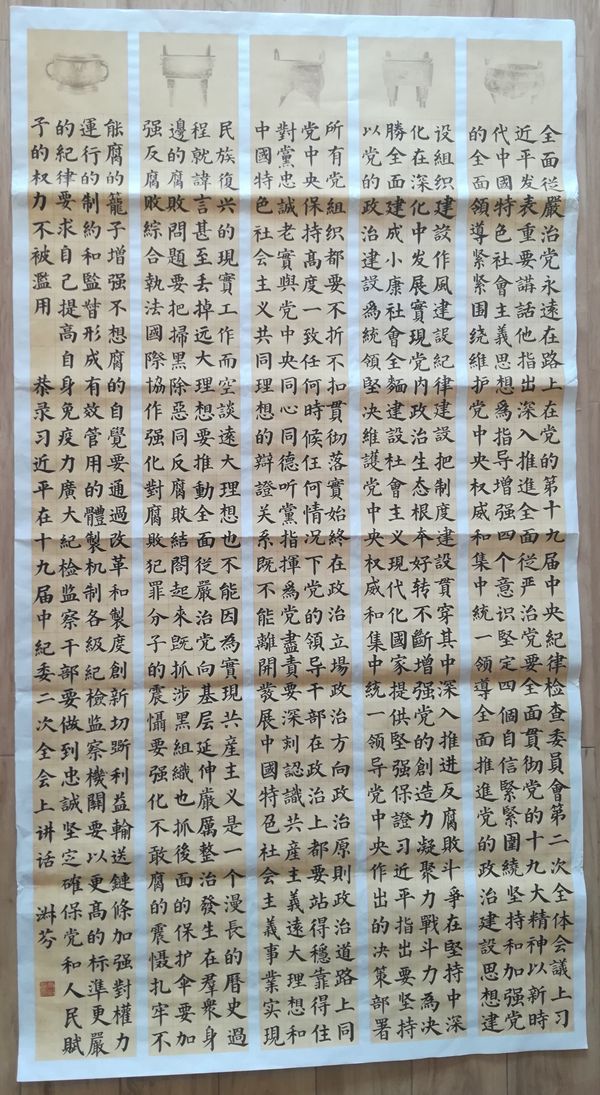 全面從嚴治党永遠在路上在党的第十九届中央紀律检查委員會第二次全体会議上习
近平发表重要講話他指出深入推進全面従严治党要全面貫彻党的十九大精神以新時
代中國特色社會主義思想為指导增强四个意识堅定四個自信緊緊圍繞坚持和加强党
的全面領導紧紧围绕維护党中央权威和集中統一領導全面推進党的政治建設思想建
设組织建設作風建設紀律建設把制度建設貫穿其中深入推进反腐敗斗爭在堅持中深
化在深化中发展實現党内政治生态根本好转不斷增强党的創造力凝聚力戰斗力為决
勝全面建成小康社會全麵建設社會主义現代化國家提供堅强保證习近平指出要坚持
以党的政治建設爲統領堅决維護党中央权威和集中統一领导党中央作出的决策部署
所有党組织都要不折不扣貫彻落實始終在政治立場政治方向政治原則政治道路上同
党中央保持高度一致任何時候任何情况下党的領导干部在政治上都要站得穩靠得住
對黨忠誠老實與党中央同心同德听黨指揮爲党盡責要深刻認識共産主義遠大理想和
中國特色社会主义共同理想的辯證关系既不能離開發展中國特色社会主義事業实現
民族復兴的現實工作而空談遠大理想也不能因為實現共産主义是一个漫長的曆史過
程就諱言甚至丢掉远大理想要推動全面従嚴治党向基层延伸嚴厲整治發生在羣衆身
邊的腐敗問題要把掃黑除惡同反腐敗結閤起来既抓涉黑組織也抓後面的保护伞要加
强反腐敗綜合執法國際協作强化對腐敗犯罪分子的震懾要强化不敢腐的震慑扎牢不
能腐的籠子增强不想腐的自覺要通過改革和製度創新切斷利益輸送鏈條加强對權力
運行的制約和監督形成有效管用的體製机制各級紀檢监察機關要以更高的标準更嚴
的紀律要求自己提高自身免疫力廣大紀检监察干部要做到忠誠坚定確保党和人民賦
予的权力不被濫用 恭录习近平在十九届中紀委二次全会上讲话 淋芬